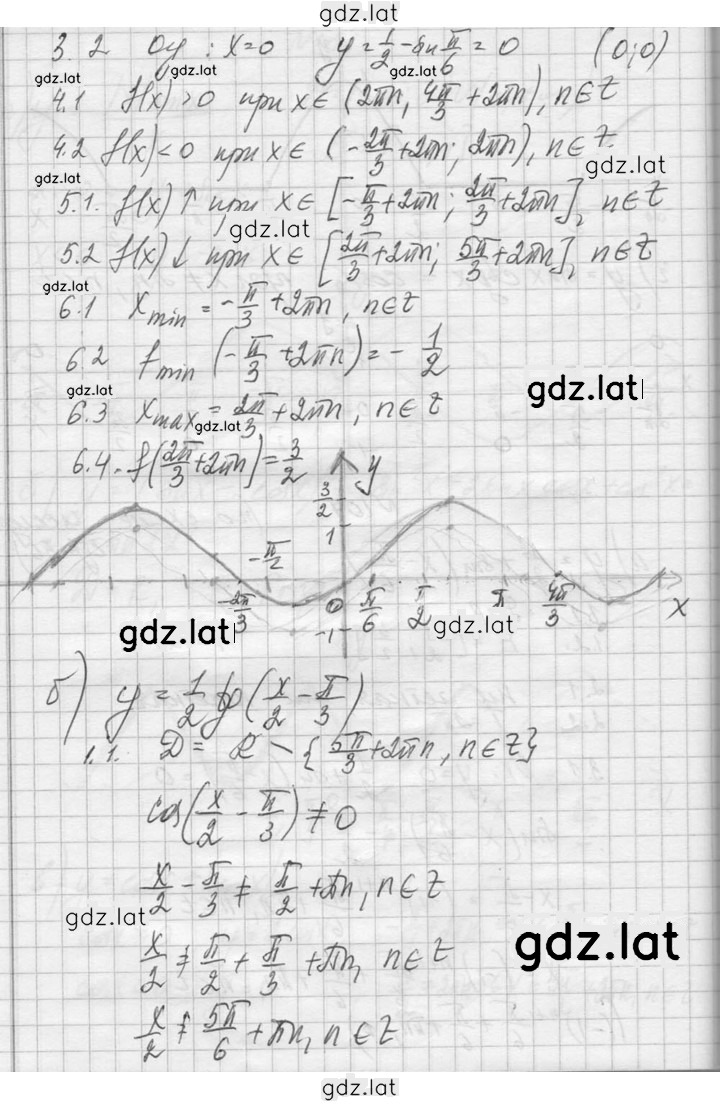 gdz.lat
3.2 Oy : x=0 y = 1/2 - sin π/6 = 0 (0;0)
gdz.lat gdz.lat
4.1 f(x) > 0 при x ∈ (2πn, 4π/3 + 2πn), n ∈ Z
4.2 f(x) < 0 при x ∈ (-2π/3 + 2πn; 2πn), n ∈ Z.
gdz.lat gdz.lat
5.1. f(x) ↑ при x ∈ [-π/3 + 2πn; 2π/3 + 2πn], n ∈ Z
gdz.lat
5.2 f(x) ↓ при x ∈ [2π/3 + 2πn; 5π/3 + 2πn], n ∈ Z
gdz.lat
6.1 x min = -π/3 + 2πn, n ∈ Z
6.2 f min (-π/3 + 2πn) = -1/2
gdz.lat gdz.lat
6.3 x max = 2π/3 + 2πn, n ∈ Z
gdz.lat
6.4. f(2π/3 + 2πn) = 3/2
y
3/2
1
-π/2
-2π/3 0 π/6 π/2 π 4π/3 x
gdz.lat gdz.lat
-1
б) y = 1/2 tg(x/2 - π/3)
1.1. D = R \ {5π/3 + 2πn, n ∈ Z}
cos(x/2 - π/3) ≠ 0
x/2 - π/3 ≠ π/2 + πn, n ∈ Z
gdz.lat
x/2 ≠ π/2 + π/3 + πn, n ∈ Z
gdz.lat
x/2 ≠ 5π/6 + πn, n ∈ Z
gdz.lat